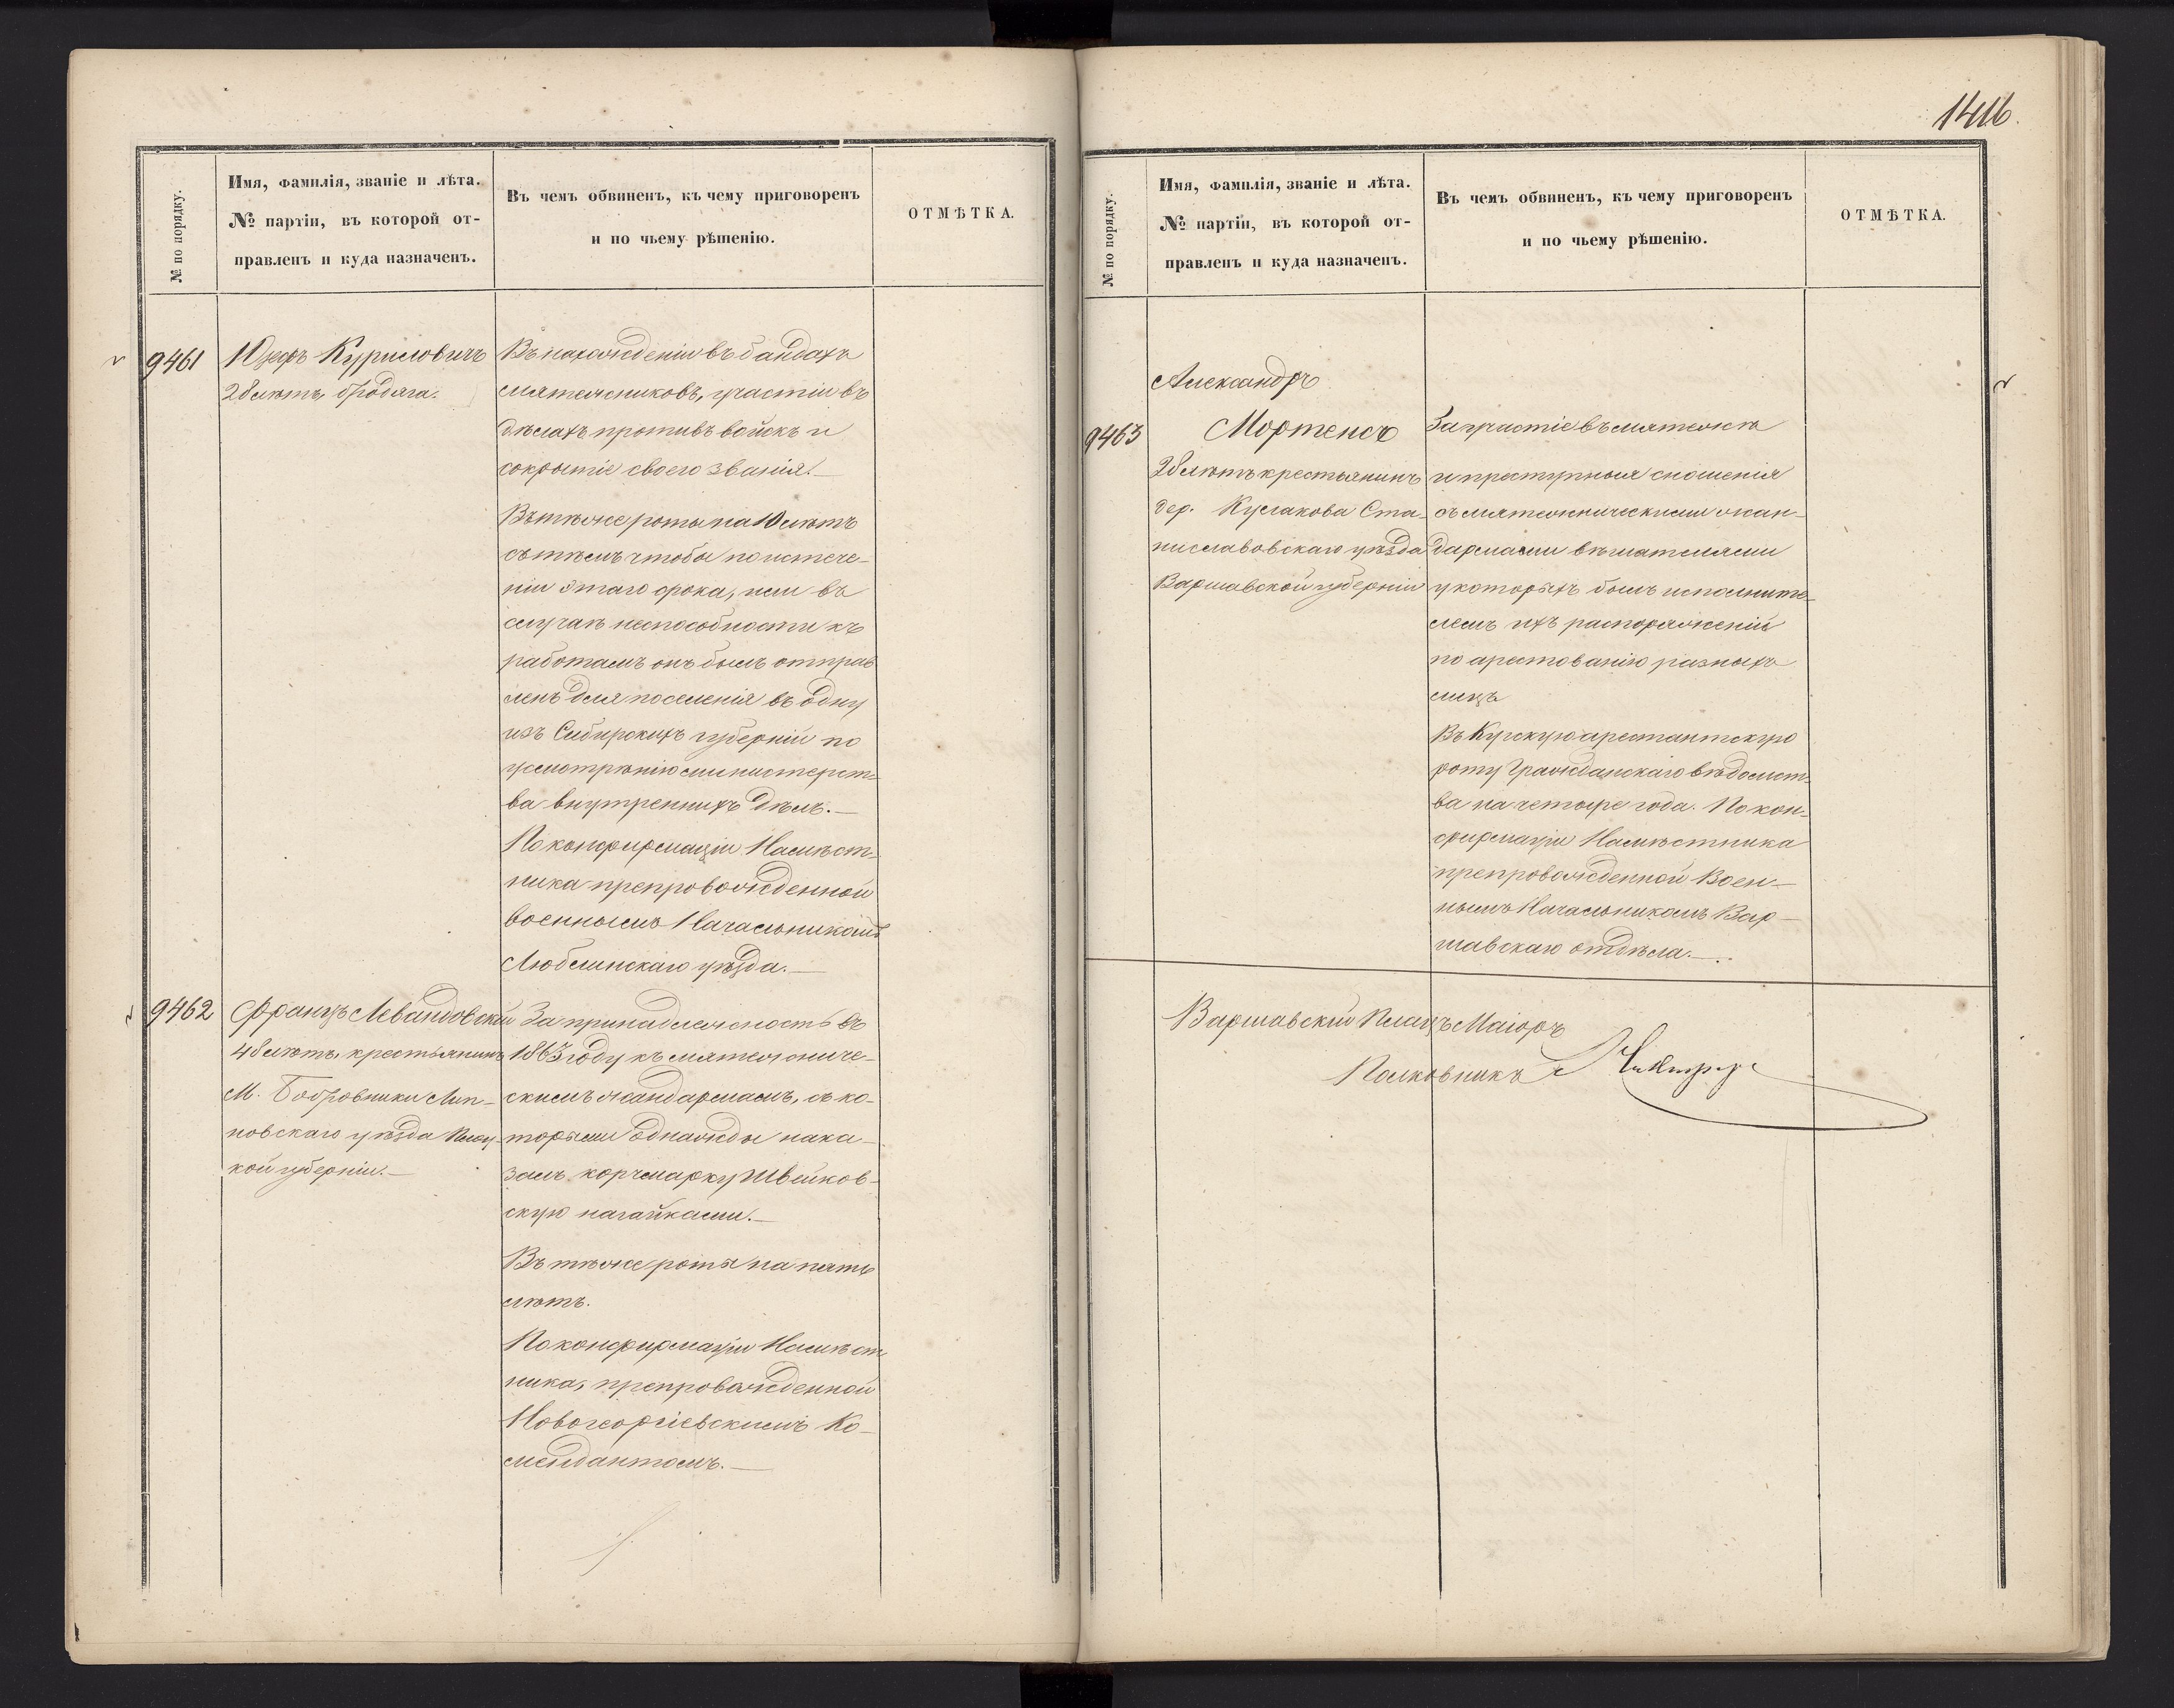 № по порядку.
Имя, фамилія, званіе и лѣта.
№ партіи, въ которой от-
правленъ и куда назначенъ.
Въ чемъ обвиненъ, къ чему приговоренъ
и по чьему рѣшенію.
ОТМѢТКА.
9461
Юзефъ Куриловичъ
28 лѣтъ, бродяга.
Въ нахожденіи въ бандахъ
мятежниковъ, участіи въ
дѣлахъ противъ войскъ и
сокрытіе своего званія.—
Въ тѣже роты на 10 лѣтъ
съ тѣмъ чтобы по истече-
ніи этаго срока, или въ
случаѣ неспособности къ
работамъ онъ былъ отправ
ленъ для поселенія въ одну
изъ Сибирскихъ губерній по
усмотрѣнію министерст-
ва внутреннихъ дѣлъ.—
По конфирмаціи Намѣст-
ника препровожденной
военнымъ Начальникомъ
Люблинскаго уѣзда.—
9462
Францъ Левандовскій
48 лѣтъ, крестьянинъ
М. Бобровники Лип-
новскаго уѣзда Плоц-
кой губерніи.—
За принадлежность въ
1863 году къ мятежниче-
скимъ жандармамъ, съ ко-
торыми однажды нака-
залъ корчмарку Швейков-
скую нагайками.—
Въ тѣже роты на пять
лѣтъ.
По конфирмаціи Намѣст
ника, препровожденной
Новогеоргіевскимъ Ко-
мендантомъ.—
1416.
№ по порядку.
Имя, фамилія, званіе и лѣта.
№ партіи, въ которой от-
правленъ и куда назначенъ.
Въ чемъ обвиненъ, къ чему приговоренъ
и по чьему рѣшенію.
ОТМѢТКА.
9463
Александръ
Мортенсъ
28 лѣтъ крестьянинъ
дер. Кулакова Ста-
ниславовскаго уѣзда
Варшавской губерніи
За участіе въ мятежѣ
и преступныя сношенія
съ мятежническими жан-
дармами вѣшателями
у которыхъ былъ исполните-
лемъ ихъ распоряженій
по арестованію разныхъ
лицъ
Въ Курскую арестантскую
роту Гражданскаго вѣдомст-
ва на четыре года. По кон-
фирмаціи Намѣстника
препровожденной Воен-
нымъ Начальникомъ Вар-
шавскаго отдѣла.—
Варшавскій Плацъ Маіоръ
Полковникъ